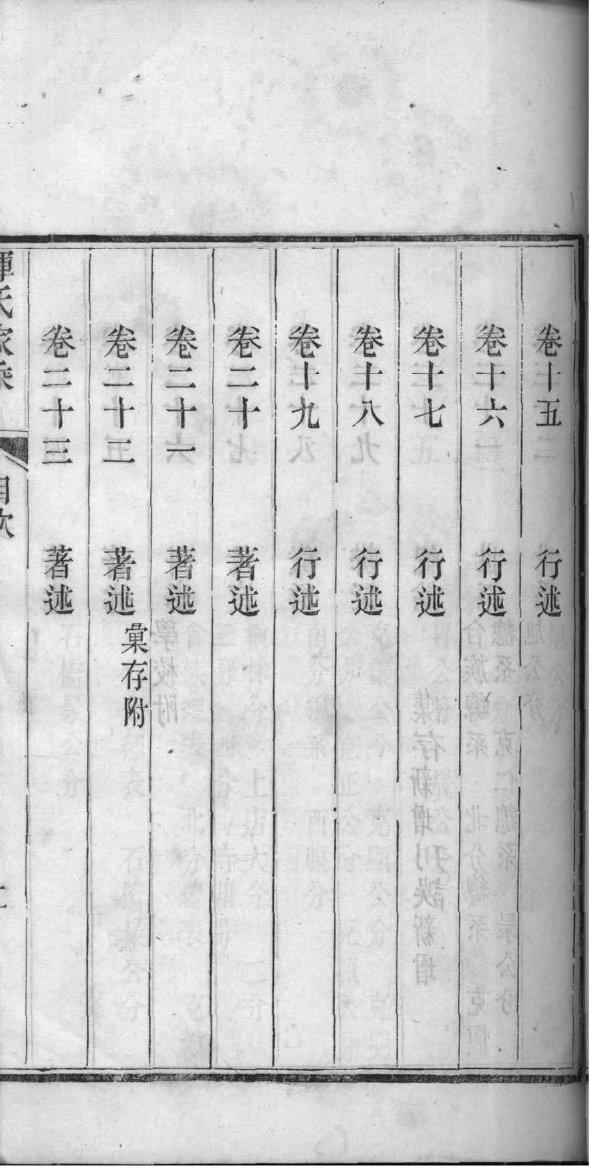 卷十五 行述
卷十六 行述
卷十七 行述
卷十八 行述
卷十九 行述
卷二十 著述
卷二十一 著述
卷二十二 著述 彙存附
卷二十三 著述
惲氏家乘 目次